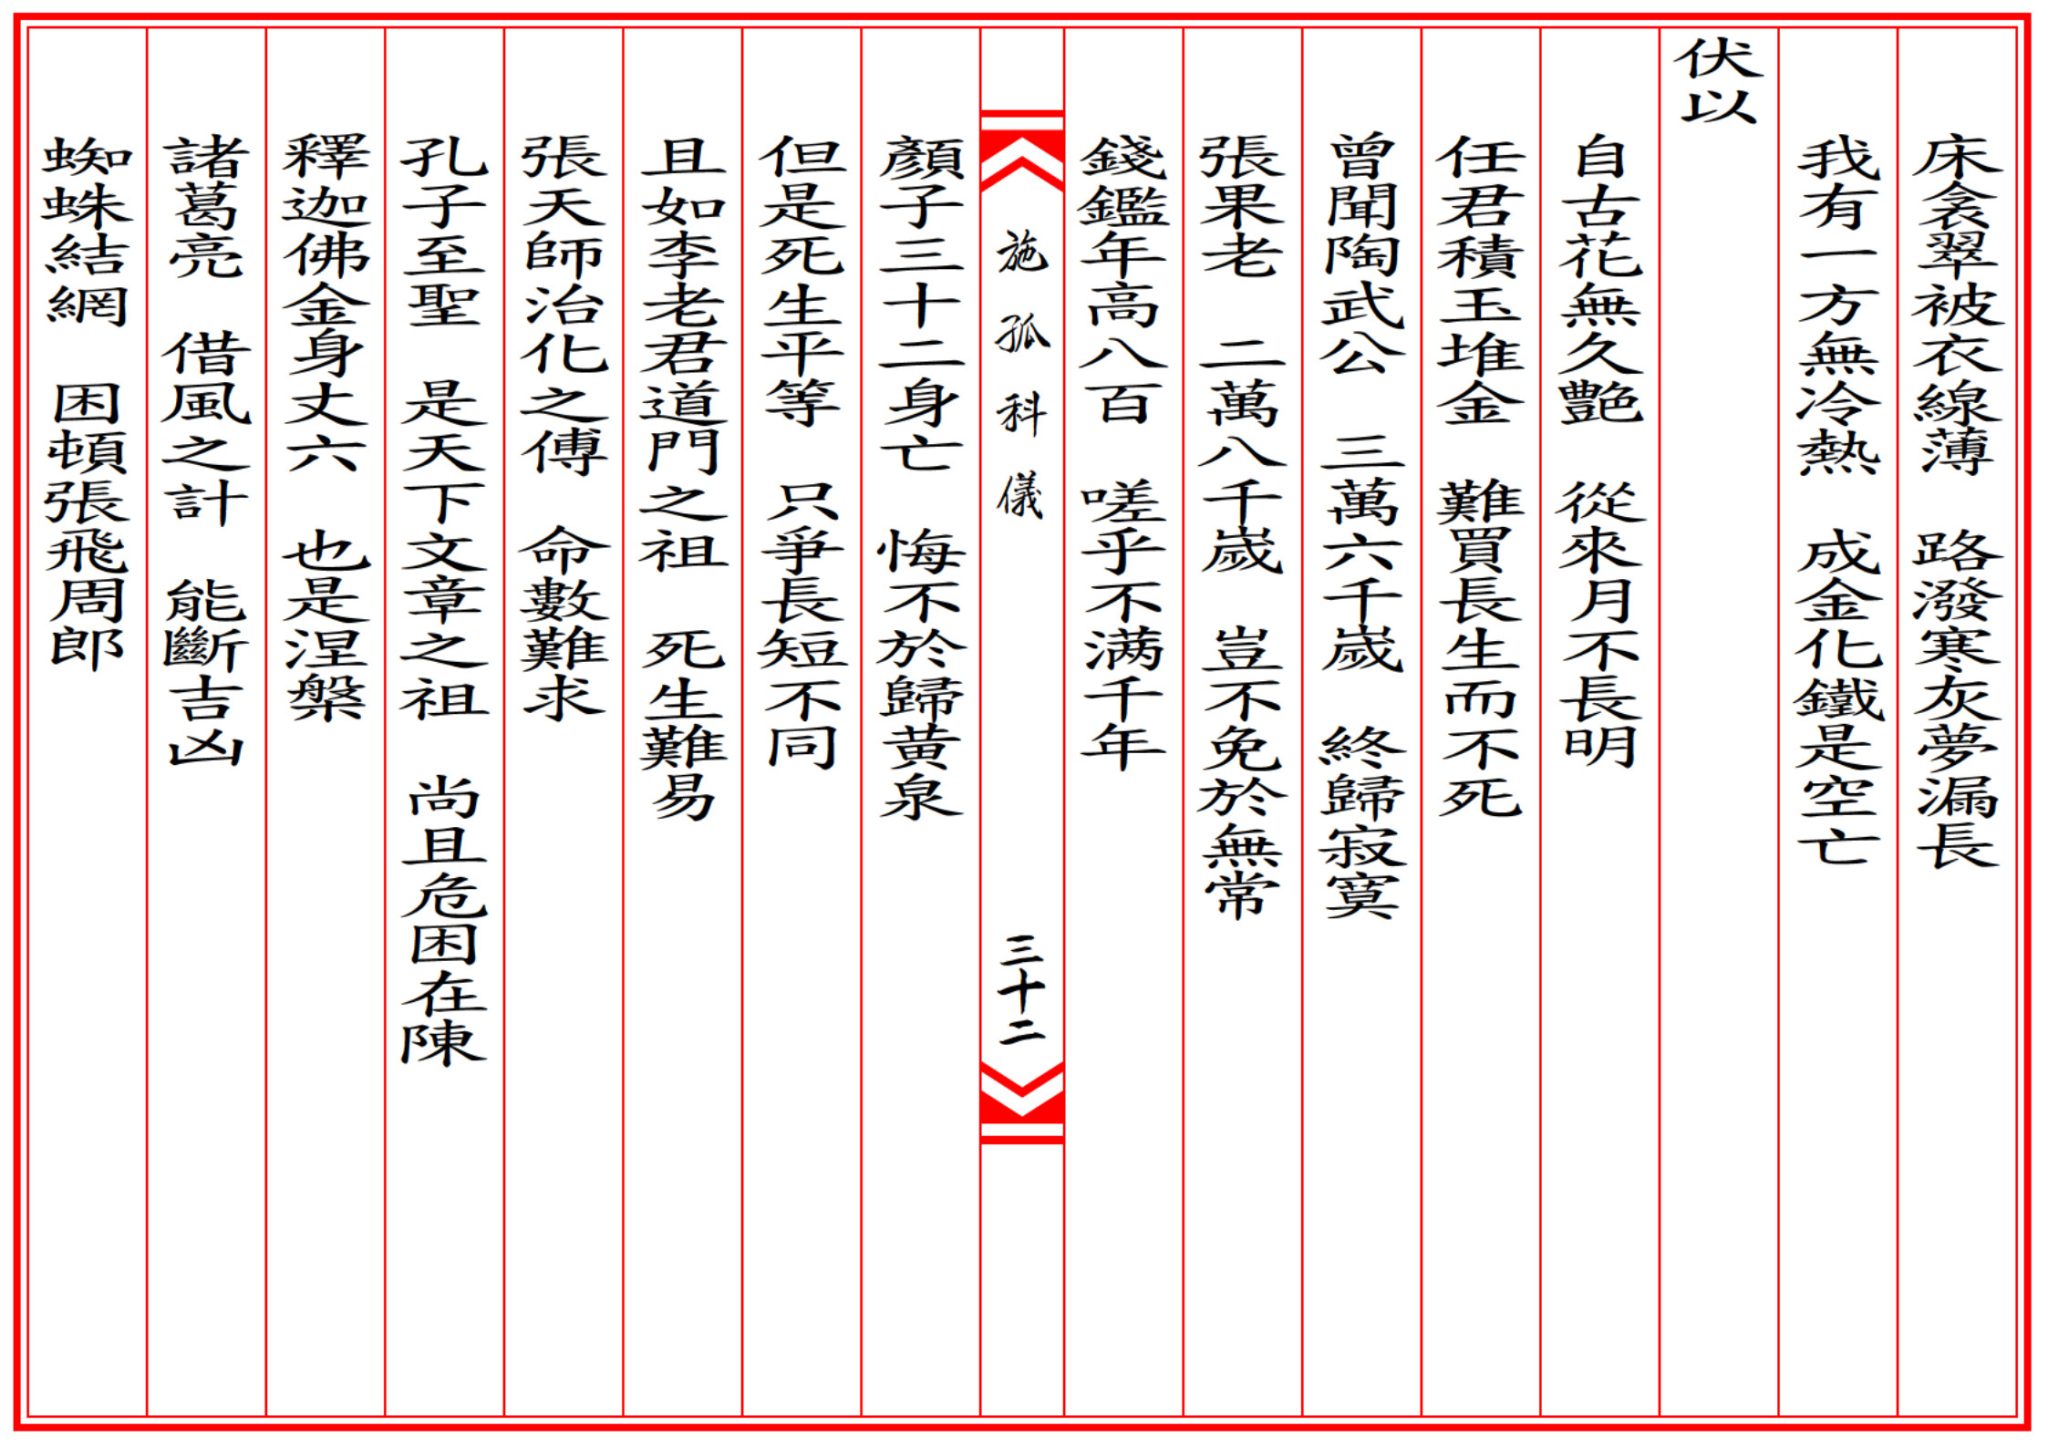 床衾翠被衣線薄　路潑寒灰夢漏長
我有一方無冷熱　成金化鐵是空亡
伏以
自古花無久艷　從來月不長明
任君積玉堆金　難買長生而不死
曾聞陶武公　三萬六千歲　終歸寂寞
張果老　二萬八千歲　豈不免於無常
錢鑑年高八百　嗟乎不满千年
施孤科儀　三十二
顏子三十二身亡　悔不於歸黄泉
但是死生平等　只爭長短不同
且如李老君道門之祖　死生難易
張天師治化之傅　命數難求
孔子至聖　是天下文章之祖　尚且危困在陳
釋迦佛金身丈六　也是涅槃
諸葛亮　借風之計　能斷吉凶
蜘蛛結網　困頓張飛周郎